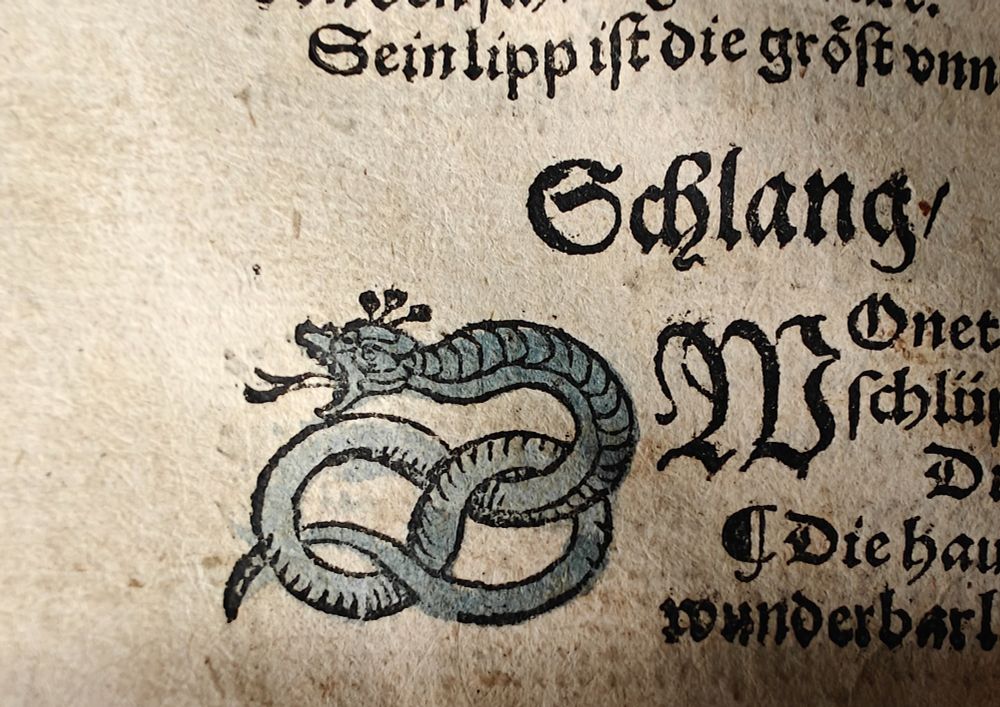 Sein lipp ist die gröst vnn
Schlang/
WOnet
schlüp
Die hau
wunderbarl